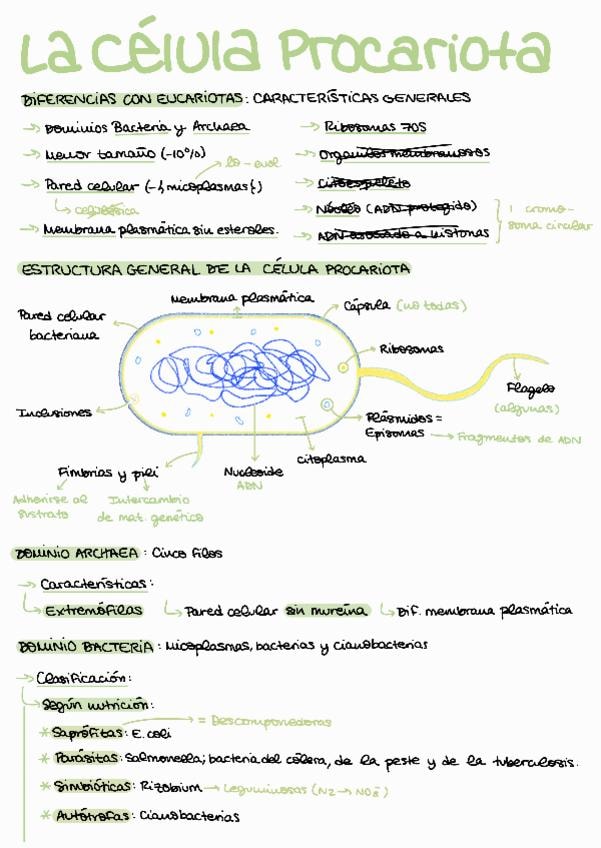 La célula Procariota
DIFERENCIAS CON EUCARIOTAS: CARACTERÍSTICAS GENERALES
→ Dominios Bacteria y Archaea
→ Menor tamaño (-10%)
lo-evol
→ Pared celular (-{micoplasmas})
→ Membrana plasmática sin esteroles.
→ Ribosomas 70S
→ Organulos membranosos
→ Citoesqueleto
→ Núcleo (ADN protegido)
→ ADN asociado a histonas
1 cromo-
soma circular
ESTRUCTURA GENERAL DE LA CÉLULA PROCARIOTA
Membrana plasmática
Pared celular
bacteriana
Cápsula (no todas)
Ribosomas
Flagelo
(algunas)
Inclusiones
Plásmidos =
Episomas → Fragmentos de ADN
citoplasma
Nucleoide
ADN
Fimbrias y pili
Adherirse al
sustrato
Intercambio
de mat. genético
DOMINIO ARCHAEA: Cinco filos
→ Características:
Extremófilas
Pared celular sin mureína
Dif. membrana plasmática
DOMINIO BACTERIA: Micoplasmas, bacterias y cianobacterias
→ Clasificación:
Según nutrición:
= Descomponedoras
* Saprófitas: E. coli
* Parásitas: Salmonella; bacteria del cólera, de la peste y de la tuberculosis.
* Simbióticas: Rizobium → Leguminosas (N2 → NO3⁻)
* Autótrofas: Cianobacterias